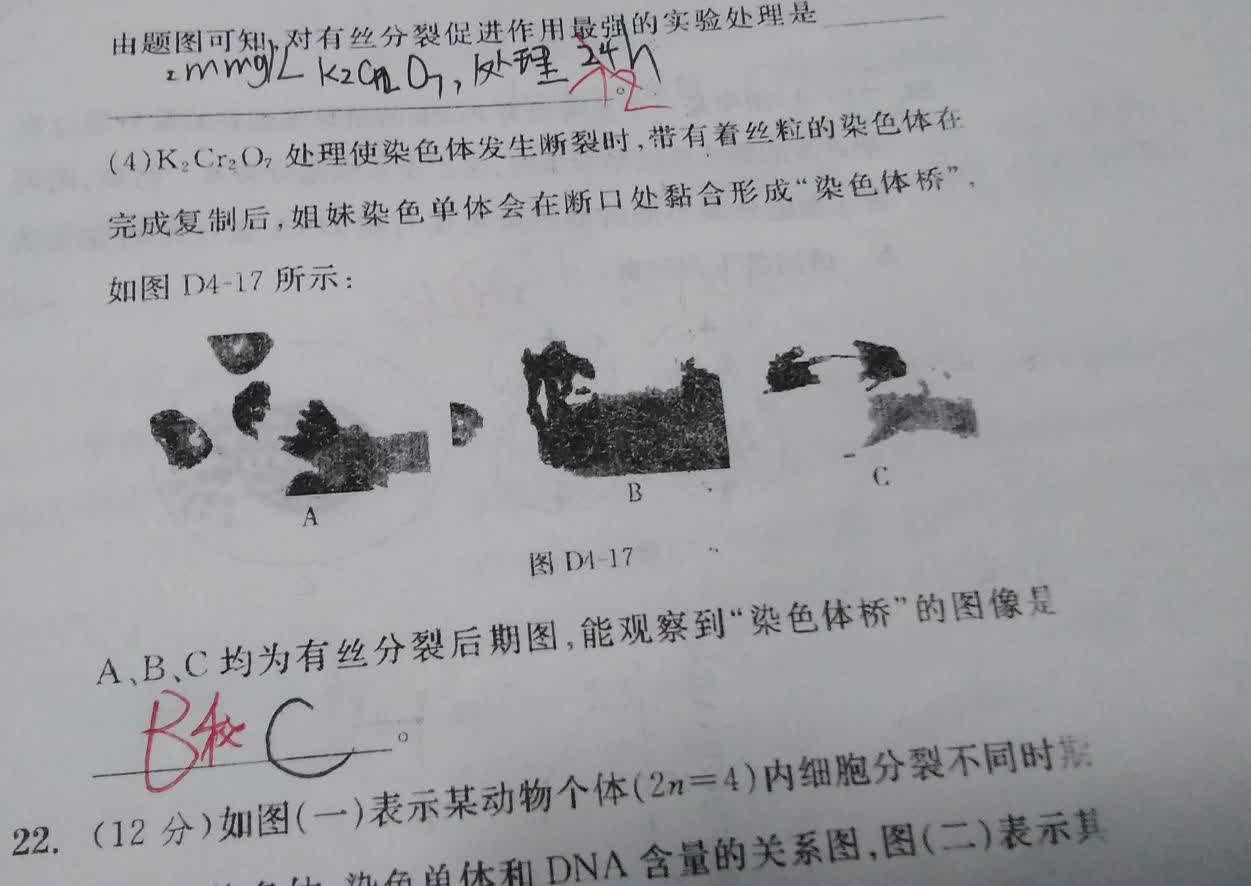 由题图可知,对有丝分裂促进作用最强的实验处理是
2mmg/L K2Cr2O7,处理 24h
12
。
(4)K₂Cr₂O₇ 处理使染色体发生断裂时,带有着丝粒的染色体在
完成复制后,姐妹染色单体会在断口处黏合形成“染色体桥”,
如图 D4-17 所示:
A
B
C
图 D4-17
A、B、C 均为有丝分裂后期图,能观察到“染色体桥”的图像是
B和 C 。
22. (12 分)如图(一)表示某动物个体(2n=4)内细胞分裂不同时期
染色体、染色单体和 DNA 含量的关系图,图(二)表示其